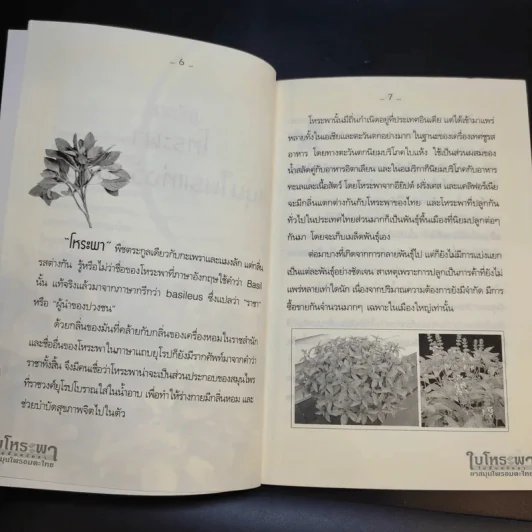 - 6 -
"โหระพา" พืชตระกูลเดียวกับกะเพราและแมงลัก แต่กลิ่น
รสต่างกัน รู้หรือไม่ว่าชื่อของโหระพาที่ภาษาอังกฤษใช้คำว่า Basil
นั้น แท้จริงแล้วมาจากภาษากรีกว่า basileus ซึ่งแปลว่า "ราชา"
หรือ "ผู้นำของปวงชน"
ด้วยกลิ่นของมันที่คล้ายกับกลิ่นของเครื่องหอมในราชสำนัก
และชื่อของโหระพาในภาษาแถบยุโรปก็ยังมีรากศัพท์มาจากคำว่า
ราชาทั้งสิ้น จึงมีคนเชื่อว่าโหระพาน่าจะเป็นส่วนประกอบของสมุนไพร
ที่ราชวงศ์ยุโรปโบราณใส่ในน้ำอาบ เพื่อทำให้ร่างกายมีกลิ่นหอม และ
ช่วยบำบัดสุขภาพจิตไปในตัว
ใบโหระพา
ยาสมุนไพรอมตะไทย
- 7 -
โหระพานั้นมีถิ่นกำเนิดอยู่ที่ประเทศอินเดีย แต่ได้เข้ามาแพร่
หลายทั้งในเอเชียและตะวันตกอย่างมาก ในฐานะของเครื่องเทศชูรส
อาหาร โดยทางตะวันตกนิยมบริโภคใบแห้ง ใช้เป็นส่วนผสมของ
น้ำสลัดคู่กับอาหารอิตาเลียน และในอเมริกาก็นิยมบริโภคกับอาหาร
ทะเลและเนื้อสัตว์ โดยโหระพาจากอียิปต์ ฝรั่งเศส และแคลิฟอร์เนีย
จะมีกลิ่นแตกต่างกันกับโหระพาของไทย และโหระพาที่ปลูกกัน
ทั่วไปในประเทศไทยส่วนมากก็เป็นพันธุ์พื้นเมืองที่นิยมปลูกต่อๆ
กันมา โดยจะเก็บเมล็ดพันธุ์เอง
ต่อมาบางที่เกิดจากการกลายพันธุ์ไป แต่ก็ยังไม่มีการแบ่งแยก
เป็นแต่ละพันธุ์อย่างชัดเจน สาเหตุเพราะการปลูกเป็นการค้าที่ยังไม่
แพร่หลายเท่าใดนัก เนื่องจากปริมาณความต้องการยังมีจำกัด มีการ
ซื้อขายกันจำนวนมากๆ เฉพาะในเมืองใหญ่เท่านั้น
ใบโหระพา
ยาสมุนไพรอมตะไทย